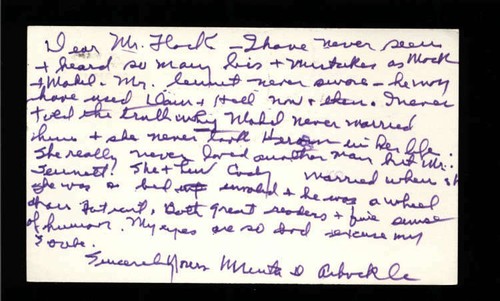 Dear Mr. Flock - I have never seen
+ heard so many lies + mistakes as Mack
+ Mabel. Mr. Sennett never swore - he may
have used Dam + Hell now + then. I never
told the truth why Mabel never married
him + she never took Heroin in her life.
She really never loved another man but Mr.
Sennett. She + Lew Cody married when
she was a bed invalid + he was a wheel
chair patient, Both great readers + fine sense
of humor. My eyes are so bad excuse my
Sincerely Yours Minta D Arbuckle